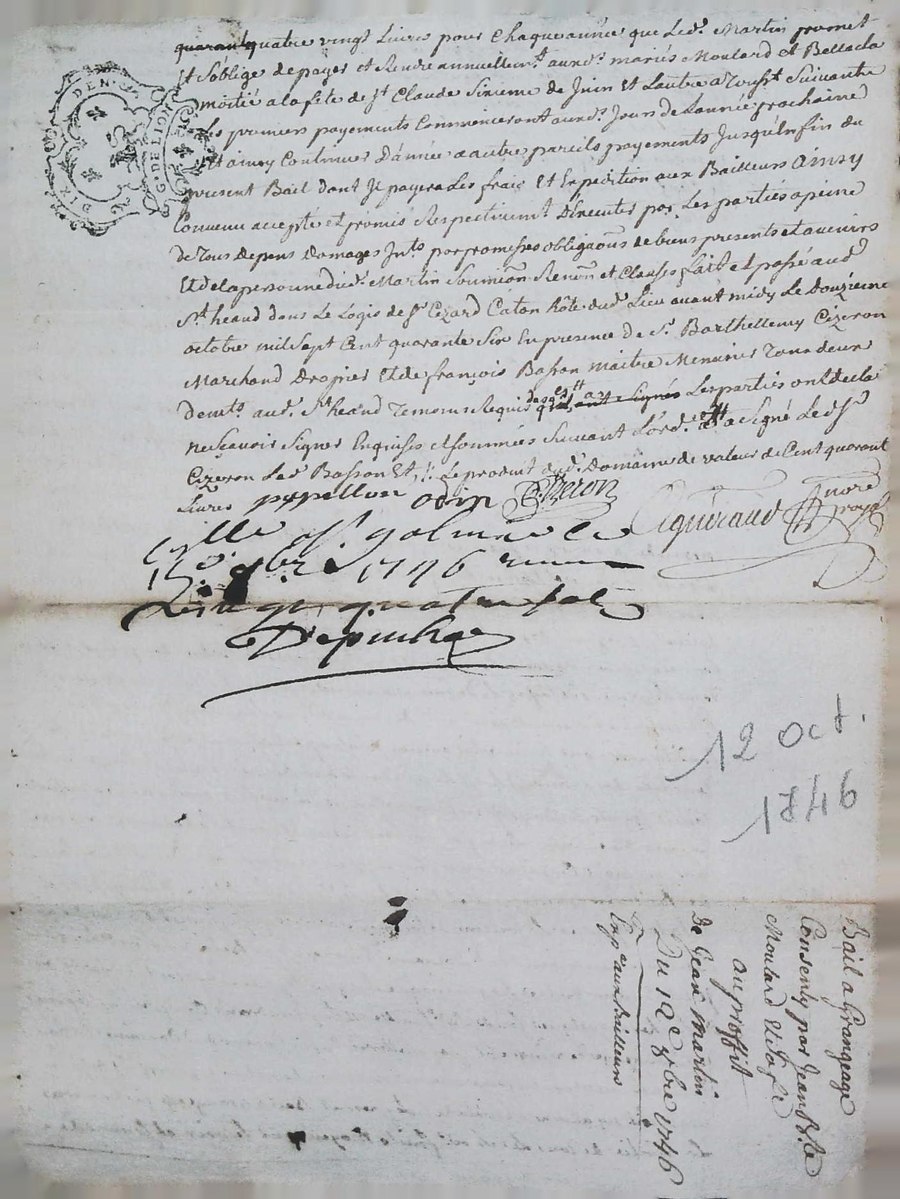 quatre vingt Livres pour chaque année que Led. Martin promet
Et soblige de payer et Rendre annuellemt. auxd. mariés Moulard et
moitié a la fete de St. Claude Sixieme de Juin et Lautre a Suivante
Les premiers payements Commenceront auxd. Jour de Lannée prochaine
Et ainsy Continuer Dannée a autre pareils payements Jusqu'en fin du
present Bail dont Il payera Les frais Et Expedition aux Bailleurs Ainsy
Convenu accepté et promis Respectivemt. Dexecuter par Les parties a peine
de Tous depens domages Jnts. par promesses obligaons de biens presents et avenirs
Et de la personne dud. Martin Soumion Renon et Clauses fait et passé aud
St. heand dans Le Logis de Sr. Cezard Caton hôte dud. Lieu avant midy Le Douzieme
octobre mil Sept Cent quarante Six En presence de Sr. Barthellemy Cizeron
Marchand Et de françois Basson maitre Menuisier Tous deux
demts. aud. St. heand Temoins Requis Signés Les parties ont decla
ne Scavoir Signer Enquises et sommées Suivant Lord. a Signé Led. Sr
Cizeron Led Basson Et Le produit dud. Domaine de valeur de Cent quarant
Livres papillon odin Cizeron
Cqueraud nore royal
galmier Le
1746
quatre sols
12 Oct.
1746
Bail a Grangeage
Consenty par Jean Bte
Moulard
au proffit
De Jean Martin
Du 12e 8bre 1746
Expon aux bailleurs
G. DE LION
DIX DEN.